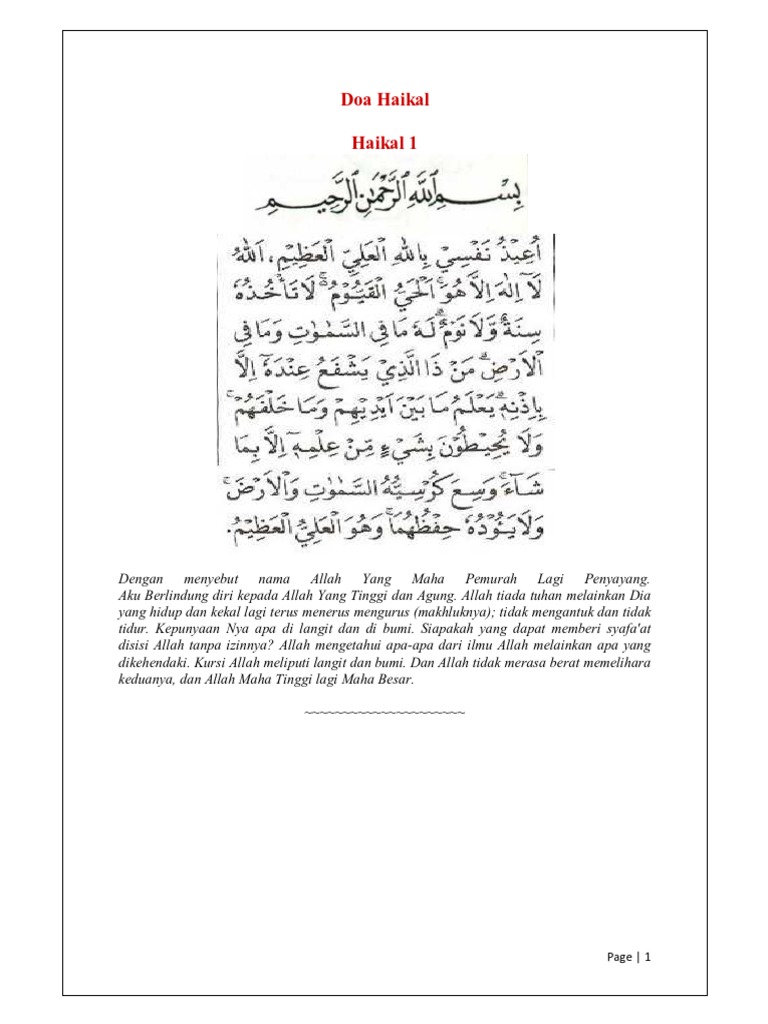 Doa Haikal
Haikal 1
بِسْمِ اللَّهِ الرَّحْمَٰنِ الرَّحِيمِ
اُعِيْذُ نَفْسِيْ بِاللهِ الْعَلِيِّ الْعَظِيْمِ، اَللهُ
لَآ اِلٰهَ اِلَّا هُوَۚ اَلْحَيُّ الْقَيُّوْمُ ۚ لَا تَأْخُذُهٗ
سِنَةٌ وَّلَا نَوْمٌ ۗ لَهٗ مَا فِى السَّمٰوٰتِ وَمَا فِى
الْاَرْضِ ۗ مَنْ ذَا الَّذِيْ يَشْفَعُ عِنْدَهٗٓ اِلَّا
بِاِذْنِهٖ ۗ يَعْلَمُ مَا بَيْنَ اَيْدِيْهِمْ وَمَا خَلْفَهُمْ ۚ
وَلَا يُحِيْطُوْنَ بِشَيْءٍ مِّنْ عِلْمِهٖٓ اِلَّا بِمَا
شَآءَ ۚ وَسِعَ كُرْسِيُّهُ السَّمٰوٰتِ وَالْاَرْضَ ۚ
وَلَا يَـُٔوْدُهٗ حِفْظُهُمَا ۚ وَهُوَ الْعَلِيُّ الْعَظِيْمُ.
Dengan menyebut nama Allah Yang Maha Pemurah Lagi Penyayang.
Aku Berlindung diri kepada Allah Yang Tinggi dan Agung. Allah tiada tuhan melainkan Dia
yang hidup dan kekal lagi terus menerus mengurus (makhluknya); tidak mengantuk dan tidak
tidur. Kepunyaan Nya apa di langit dan di bumi. Siapakah yang dapat memberi syafa'at
disisi Allah tanpa izinnya? Allah mengetahui apa-apa dari ilmu Allah melainkan apa yang
dikehendaki. Kursi Allah meliputi langit dan bumi. Dan Allah tidak merasa berat memelihara
keduanya, dan Allah Maha Tinggi lagi Maha Besar.
~~~~~~~~~~~~~~~~~~~~~~
Page | 1